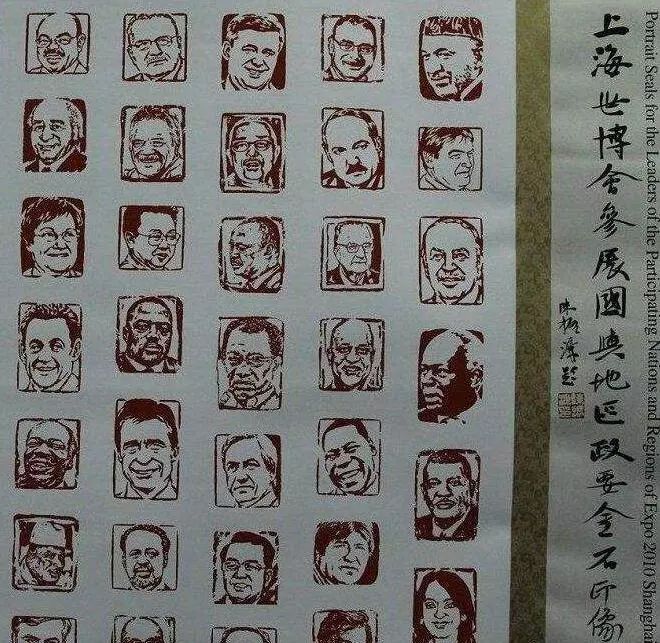 上海世博會參展國與地區政要金石印像
Portrait Seals for the Leaders of the Participating Nations and Regions of Expo 2010 Shangh